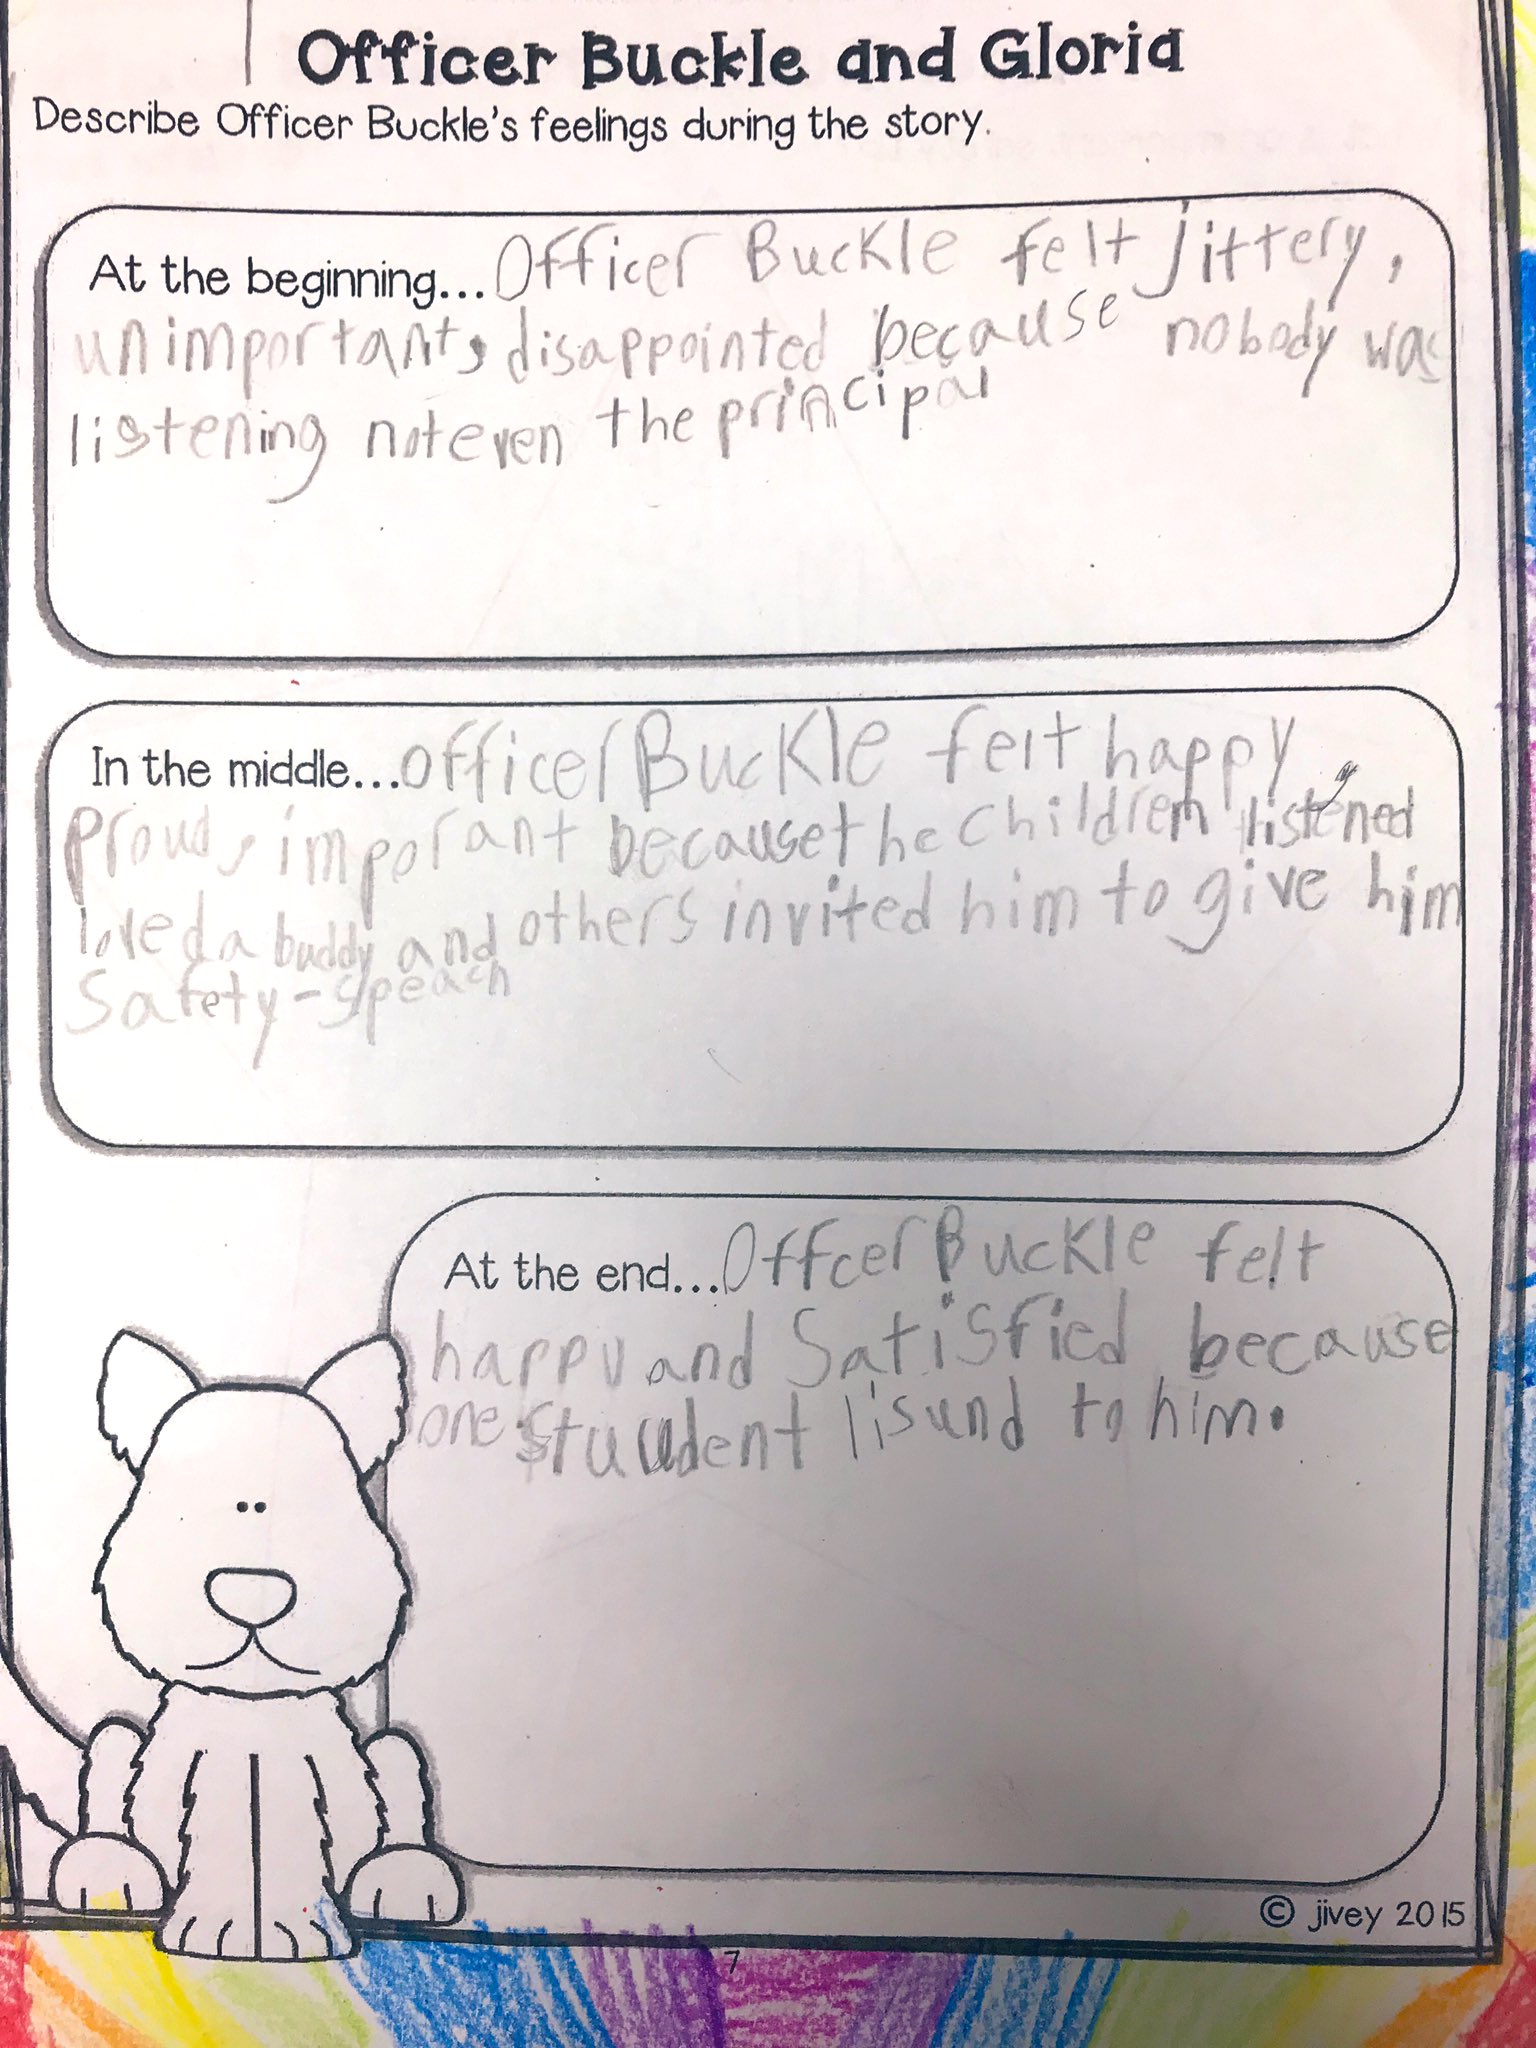 Officer Buckle and Gloria
Describe Officer Buckle's feelings during the story.
At the beginning... Officer Buckle felt jittery,
unimportant, disappointed because nobody was
listening not even the principal
In the middle... officer Buckle felt happy,
proud, imporant because the children listened
loved a buddy and others invited him to give him
Safety-speach
At the end... Offcer Buckle felt
happy and Satisfied because
one stuudent lisund to him.
© jivey 2015
7